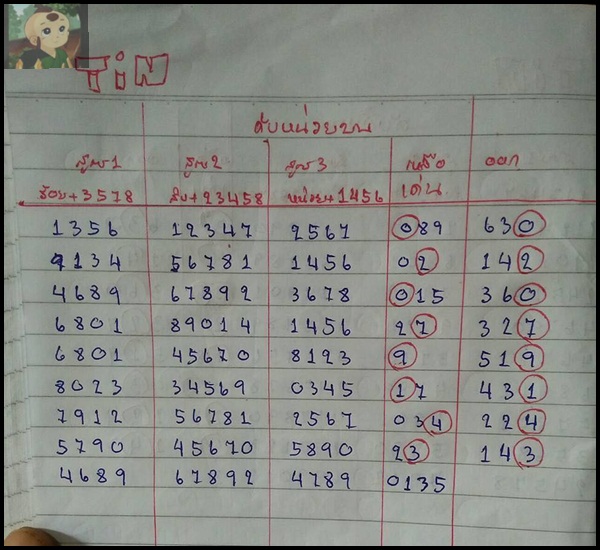 TiN
ดับหน่วยบน
สูตร1 สูตร2 สูตร3 เหลือ ออก
ร้อย+3578 สิบ+23458 หน่วย+1456 เด่น
1356 12347 2567 089 630
9134 56781 1456 02 142
4689 67892 3678 015 360
6801 89014 1456 27 327
6801 45670 8123 9 519
8023 34569 0345 17 431
7912 56781 2567 034 224
5790 45670 5890 23 143
4689 67892 4789 0135